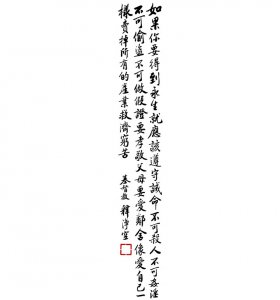 如果你要得到永生就應該遵守誡命不可殺人不可姦淫
不可偷盜不可做假證要孝敬父母要愛鄰舍像愛自己一
樣賣掉所有的產業救濟窮苦 基督教 釋淨空